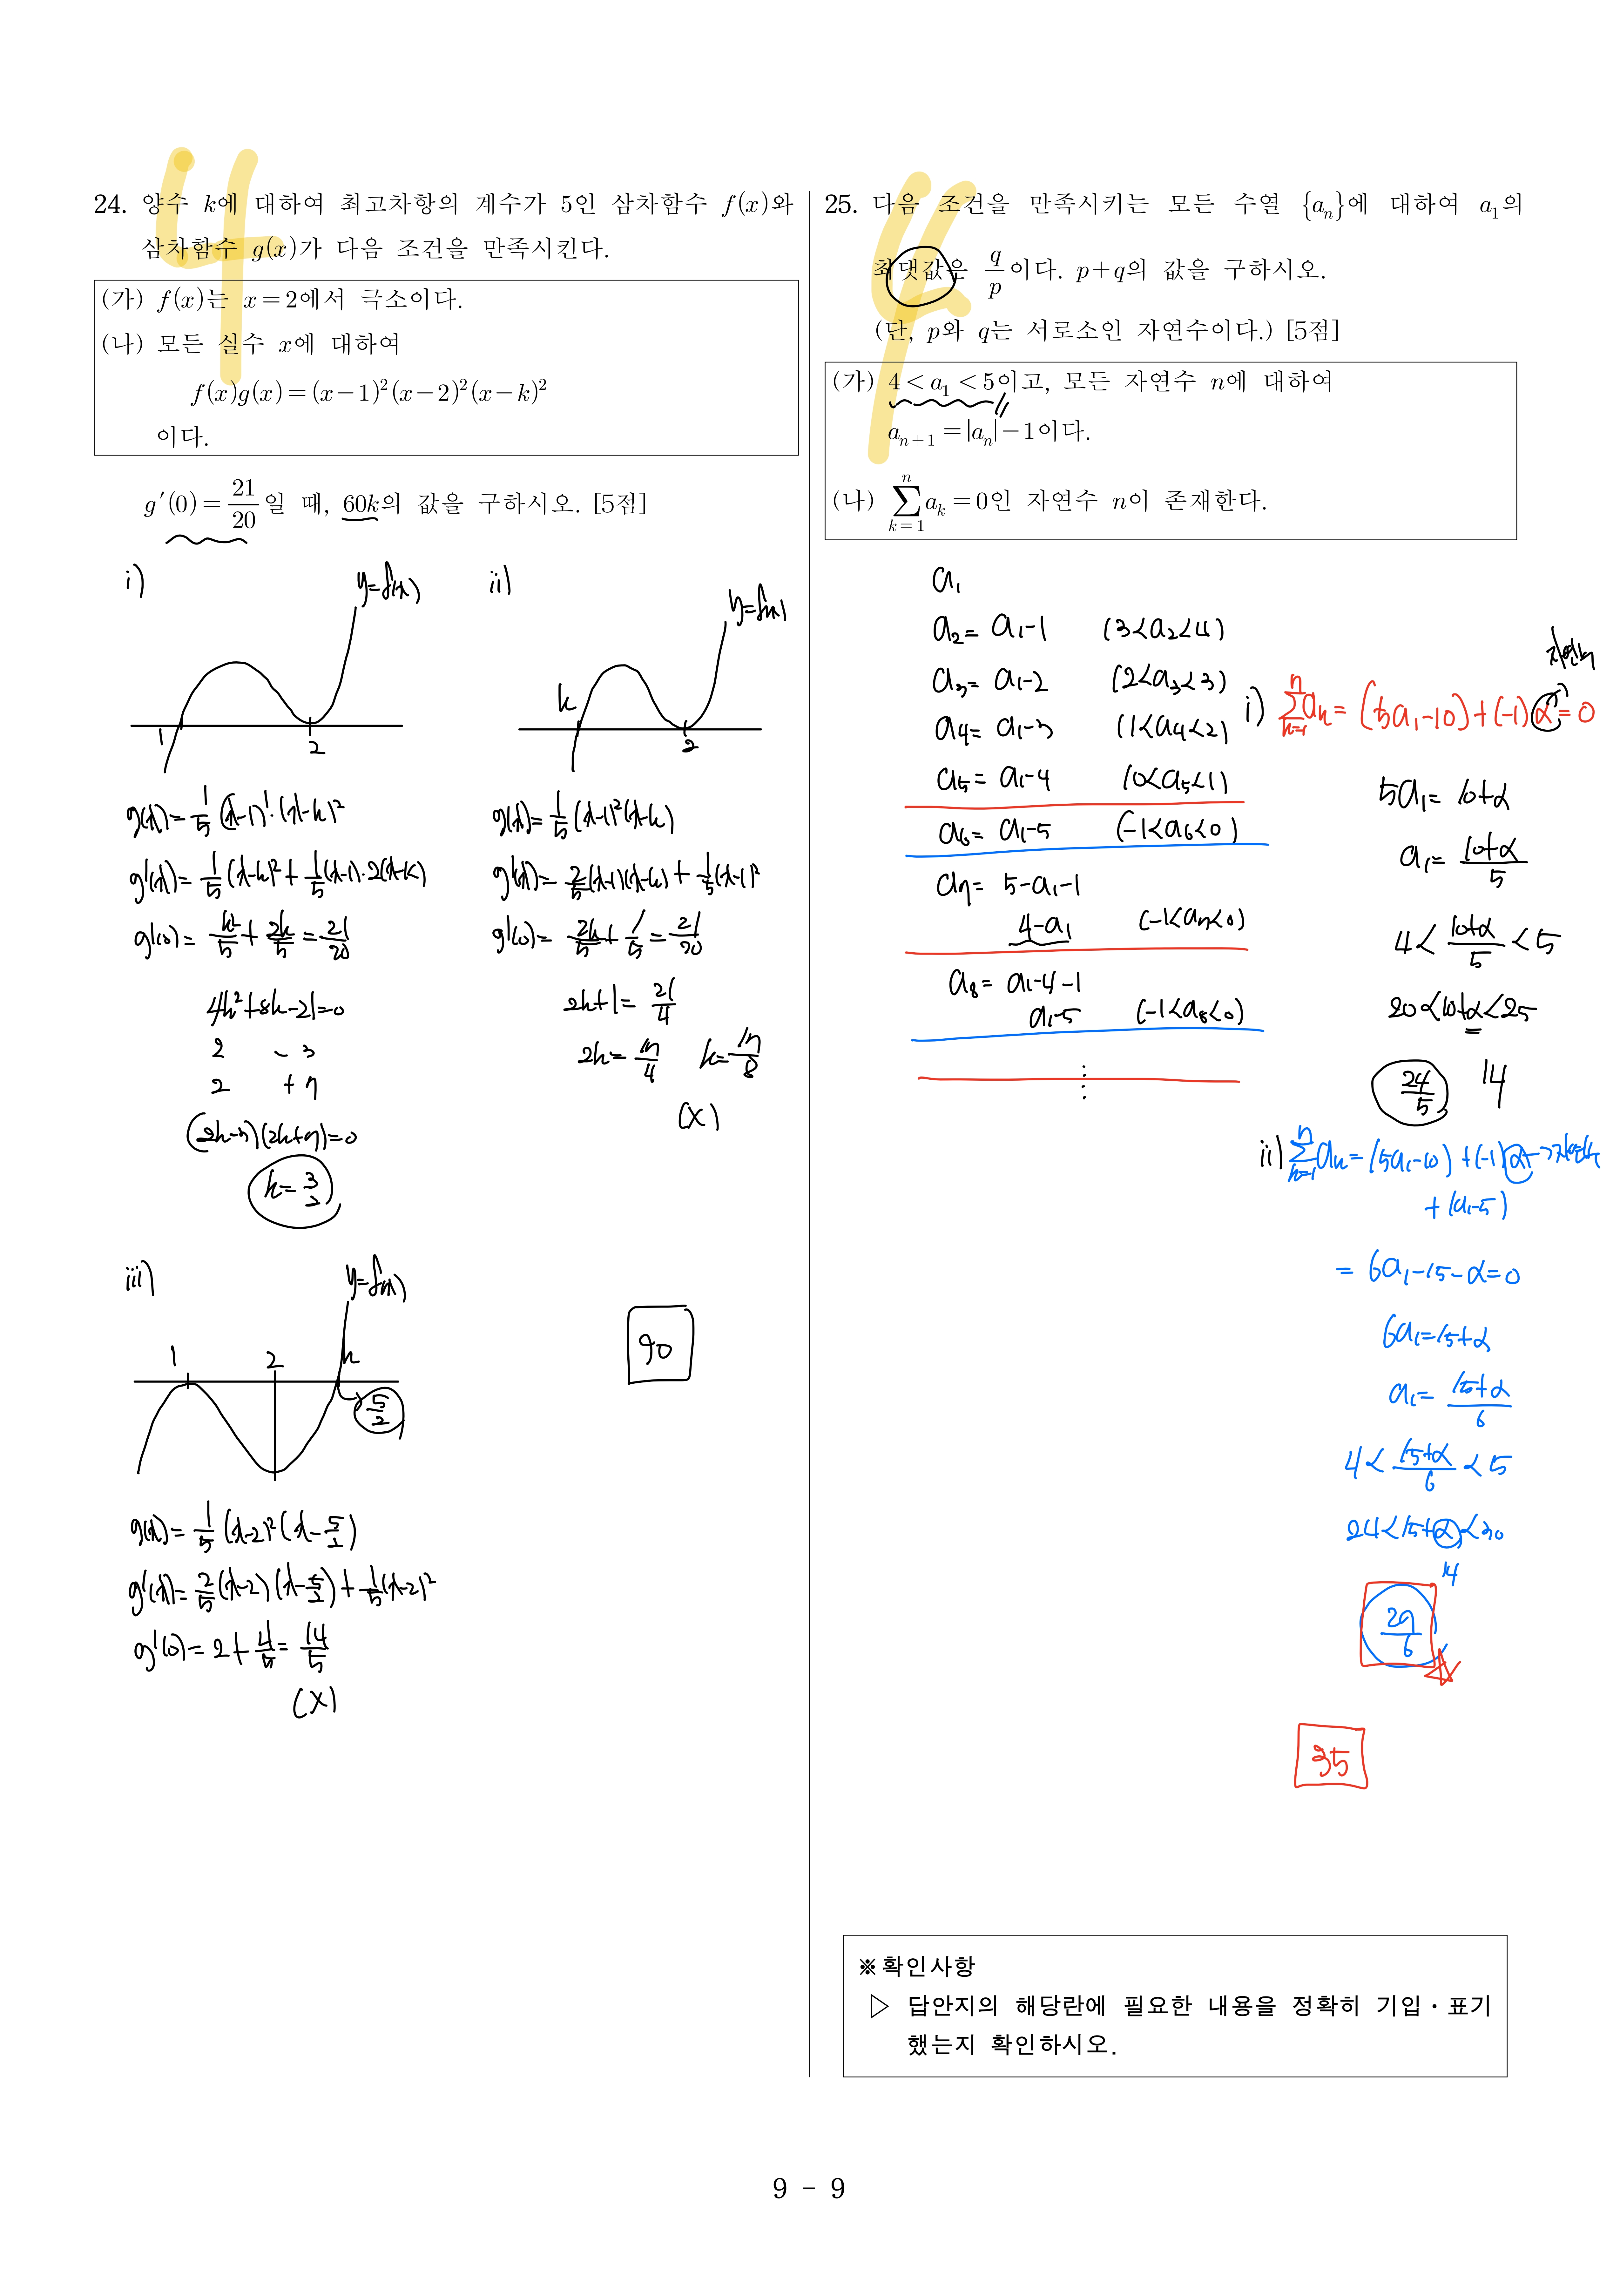 24. 양수 k에 대하여 최고차항의 계수가 5인 삼차함수 f(x)와
삼차함수 g(x)가 다음 조건을 만족시킨다.
(가) f(x)는 x=2에서 극소이다.
(나) 모든 실수 x에 대하여
f(x)g(x)=(x-1)²(x-2)²(x-k)²
이다.
g′(0)=21/20일 때, 60k의 값을 구하시오. [5점]
4
i)
y=f(x)
1
2
g(x)=1/5(x-1)¹·(x-k)²
g'(x)=1/5(x-k)²+1/5(x-1)·2(x-k)
g'(0)=k²/5+2k/5=21/20
4k²+8k-21=0
2 -3
2 +7
(2k-3)(2k+7)=0
k=3/2
ii)
y=f(x)
k
2
g(x)=1/5(x-1)²(x-k)
g'(x)=2/5(x-1)(x-k)+1/5(x-1)²
g'(0)=2k/5+1/5=21/20
2k+1=21/4
2k=17/4 k=17/8
(X)
iii)
y=f(x)
1 2 k
5/2
g(x)=1/5(x-2)²(x-5/2)
g'(x)=2/5(x-2)(x-5/2)+1/5(x-2)²
g'(0)=2+4/5=14/5
(X)
90
25. 다음 조건을 만족시키는 모든 수열 {aₙ}에 대하여 a₁의
최댓값은 q/p이다. p+q의 값을 구하시오.
(단, p와 q는 서로소인 자연수이다.) [5점]
(가) 4<a₁<5이고, 모든 자연수 n에 대하여
aₙ₊₁=|aₙ|-1이다.
(나) ∑ₖ₌₁ⁿ aₖ=0인 자연수 n이 존재한다.
4
a₁
a₂= a₁-1 (3<a₂<4)
a₃= a₁-2 (2<a₃<3)
a₄= a₁-3 (1<a₄<2)
a₅= a₁-4 (0<a₅<1)
a₆= a₁-5 (-1<a₆<0)
a₇= 5-a₁-1
4-a₁ (-1<a₇<0)
a₈= a₁-4-1
a₁-5 (-1<a₈<0)
⋮
자연수
i) ∑ₖ₌₁ⁿ aₖ=(5a₁-10)+(-1)α=0
5a₁=10+α
a₁=(10+α)/5
4<(10+α)/5<5
20<10+α<25
24/5 14
ii) ∑ₖ₌₁ⁿ aₖ=(5a₁-10)+(-1)α→자연수
+(a₁-5)
=6a₁-15-α=0
6a₁=15+α
a₁=(15+α)/6
4<(15+α)/6<5
24<15+α<30
14
29/6
35
※ 확인사항
▷ 답안지의 해당란에 필요한 내용을 정확히 기입·표기
했는지 확인하시오.
9 - 9